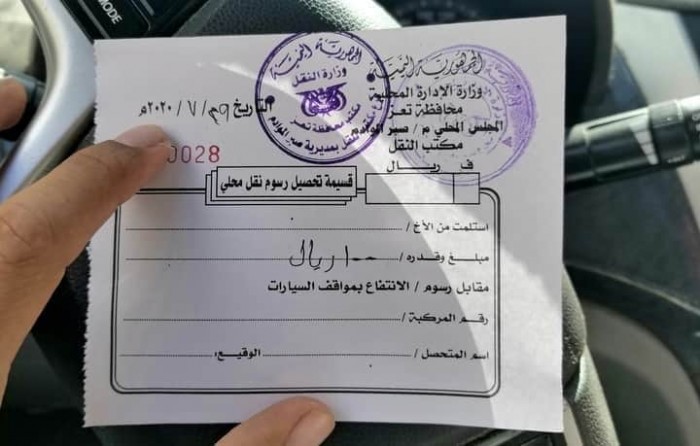 MODE
الجمهورية اليمنية
وزارة الإدارة المحلية
محافظة تعز
المجلس المحلي م / صبر الموادم
مكتب النقل
الجمهورية اليمنية
وزارة النقل
التاريخ ٢٩ / ٧ / ٢٠٢٠م
0028
ف ريال
قسيمة تحصيل رسوم نقل محلي
استلمت من الأخ /
مبلغ وقدره / ١٠٠ ريال
مقابل رسوم / الانتفاع بمواقف السيارات
رقم المركبة /
اسم المتحصل / الوقيع: